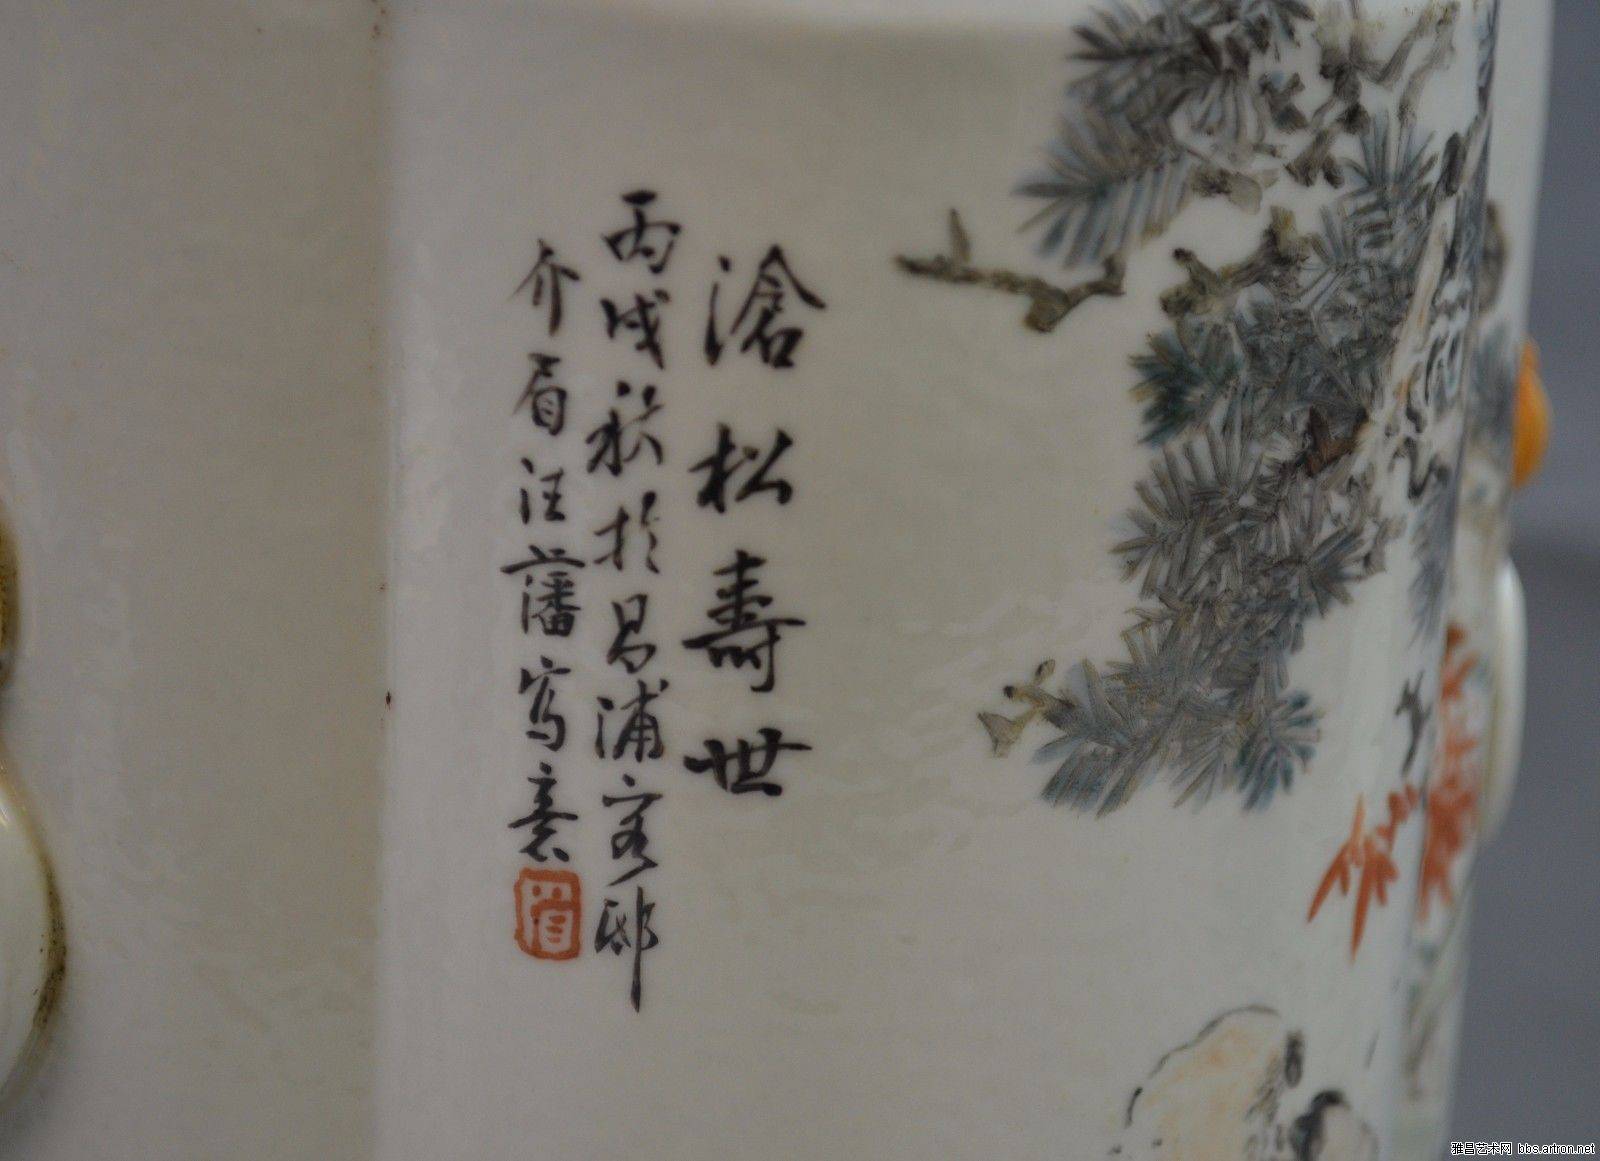 滄松壽世
丙戌秋於昌浦客邸
介眉汪藩寫意
眉
雅昌艺术网 bbs.artron.net